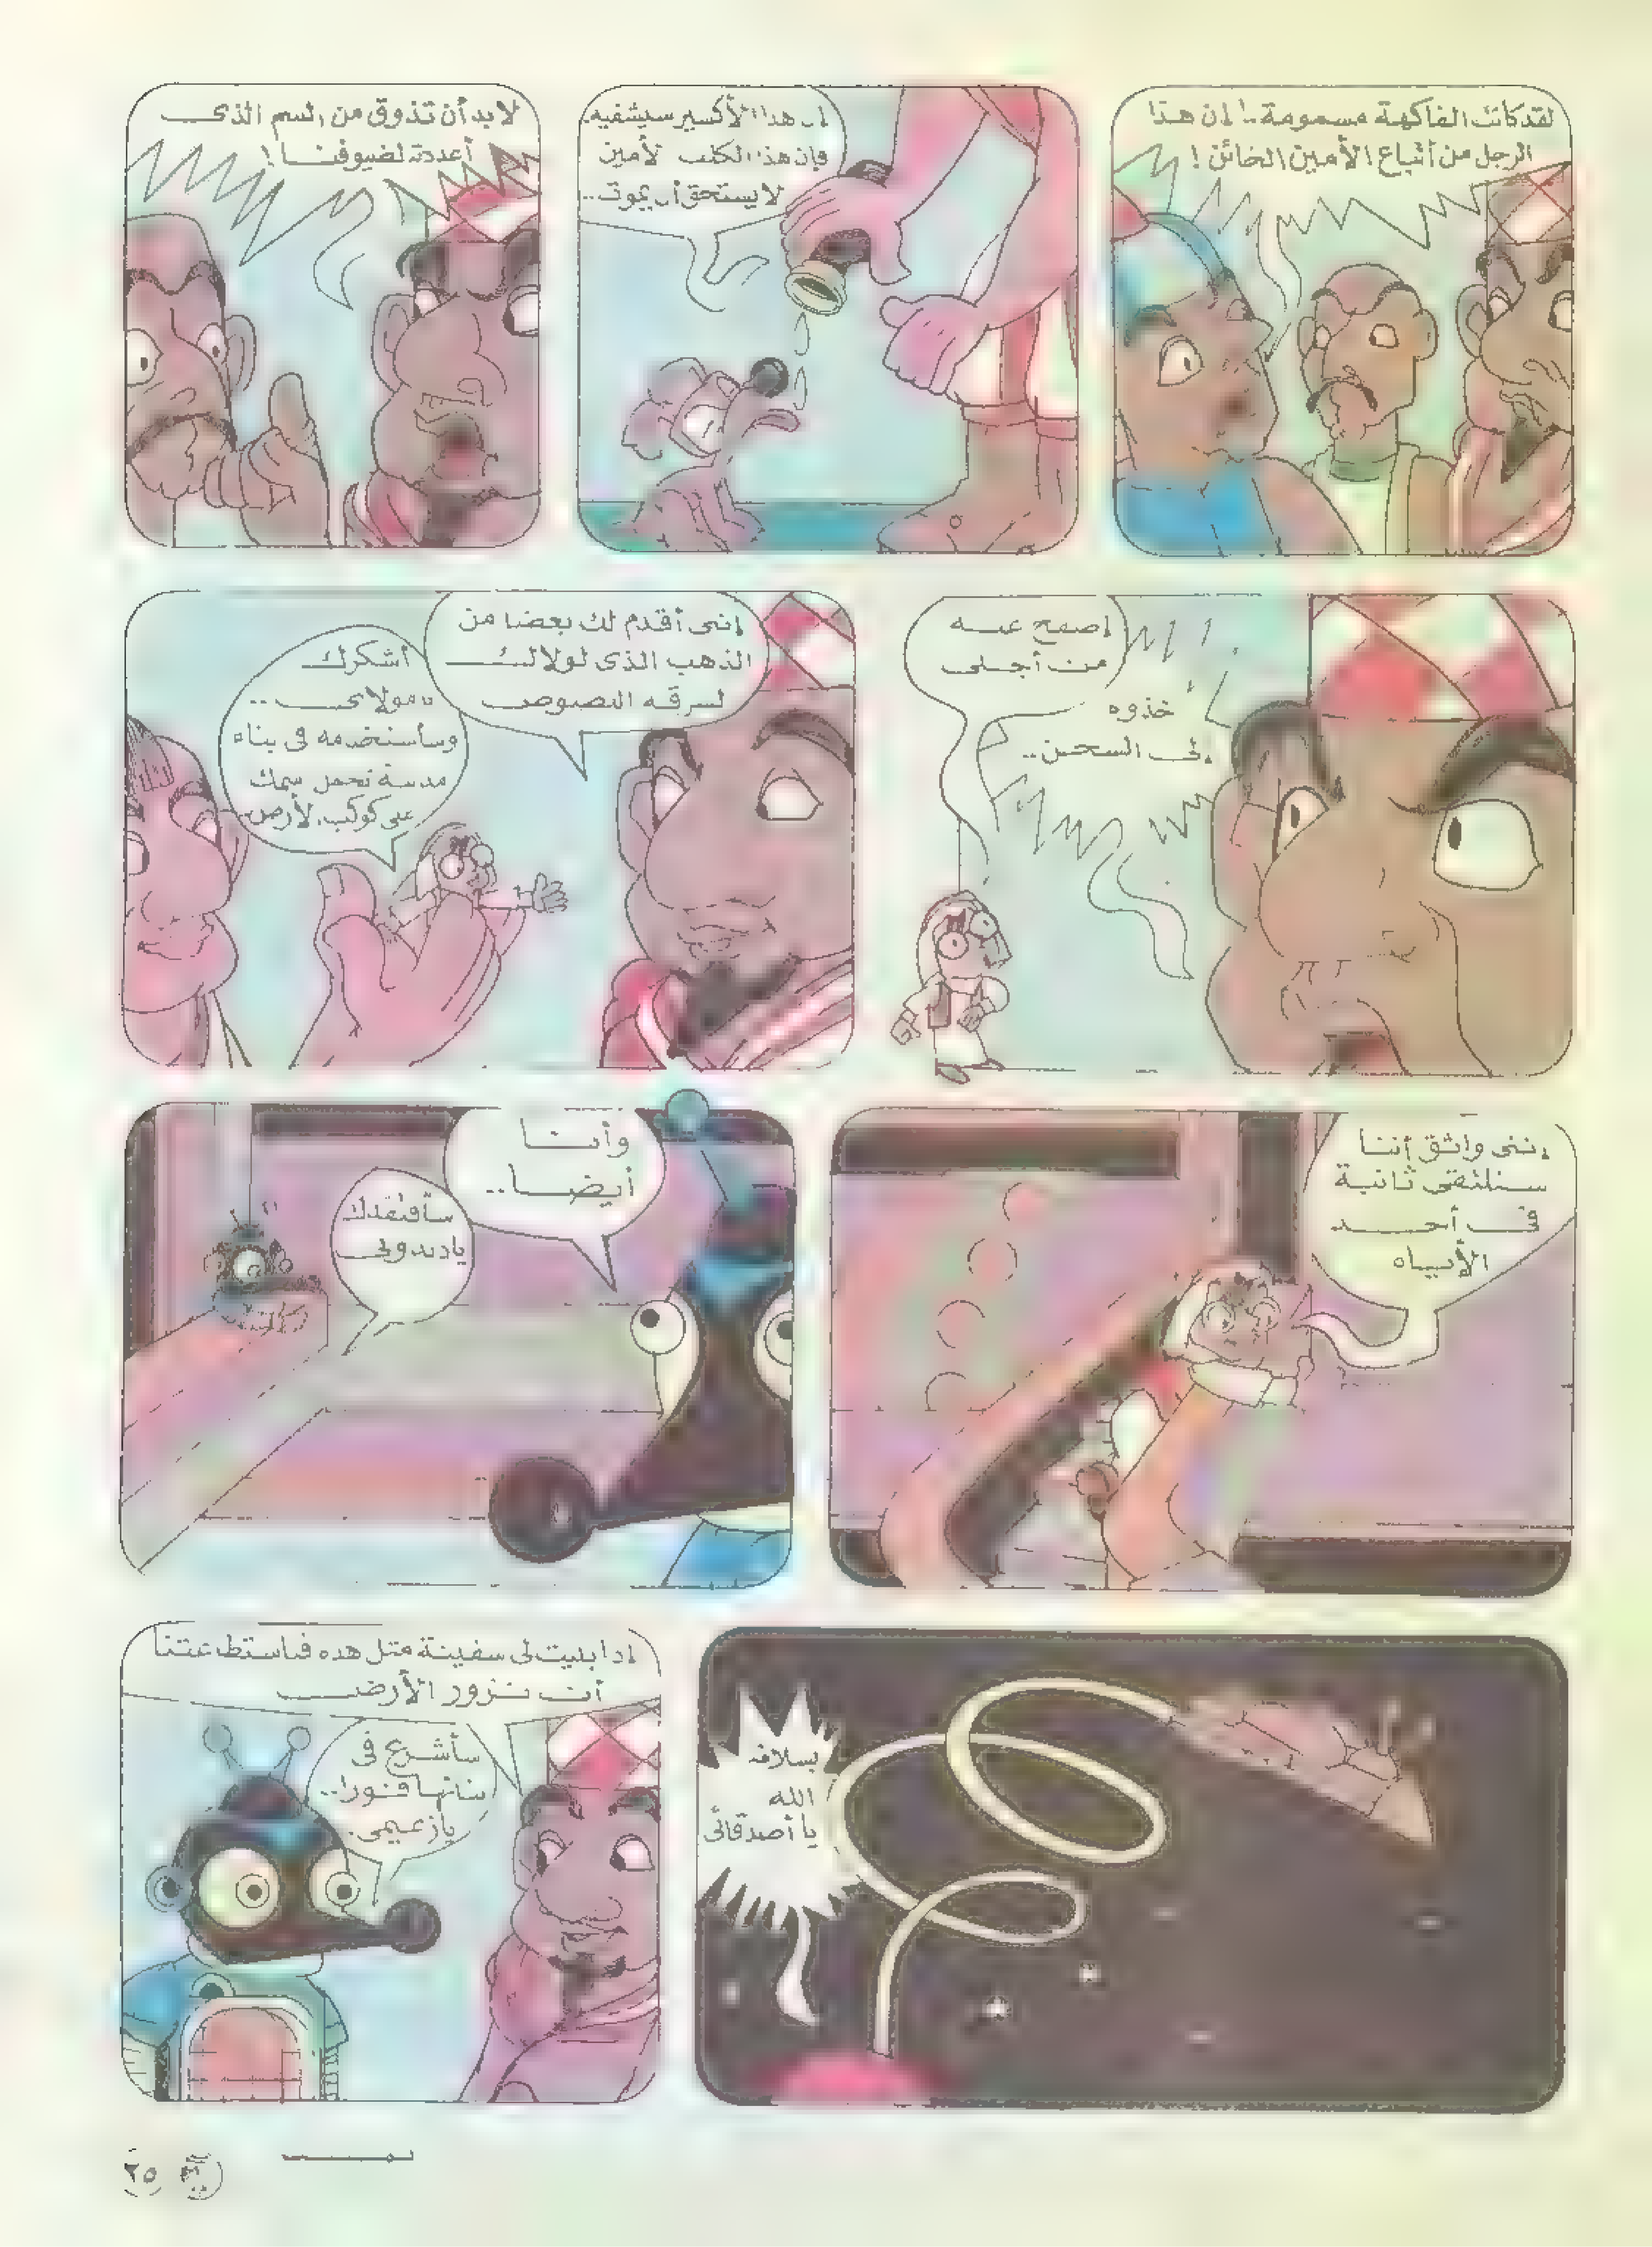 لقد كانت الفاكهة مسمومة.. إن هذا
الرجل من أتباع الأمين الخائن !
إن هذا الأكسير سيشفيه
فإن هذا الكلب الأمين
لا يستحق أن يموت..
لا بد أن تذوق من السم الذى
أعددته لضيوفنا !
إصفح عنه
من أجلى
خذوه
إلى السجن..
إننى أقدم لك بعضا من
الذهب الذى لولاك
لسرقه اللصوص
أشكرك
يا مولاى ..
وسأستخدمه فى بناء
مدينة تحمل إسمك
على كوكب الأرض
إننى واثق أننا
سنلتقى ثانية
فى أحد
الأيام
وأنا
أيضا..
سأفتقدك
يا
بسلامة
الله
يا أصدقائى
إذا بنيت لى سفينة مثل هذه فباستطاعتنا
أن نزور الأرض
سأشرع فى
بنائها فورا..
يا زعيمى.
تمت
٢٥